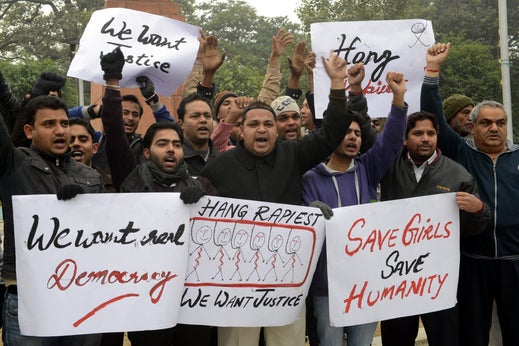 We Want
Justice
Hang
We want real
Democracy
HANG RAPIEST
WE WANT JUSTICE
SAVE GIRLS
SAVE
HUMANITY